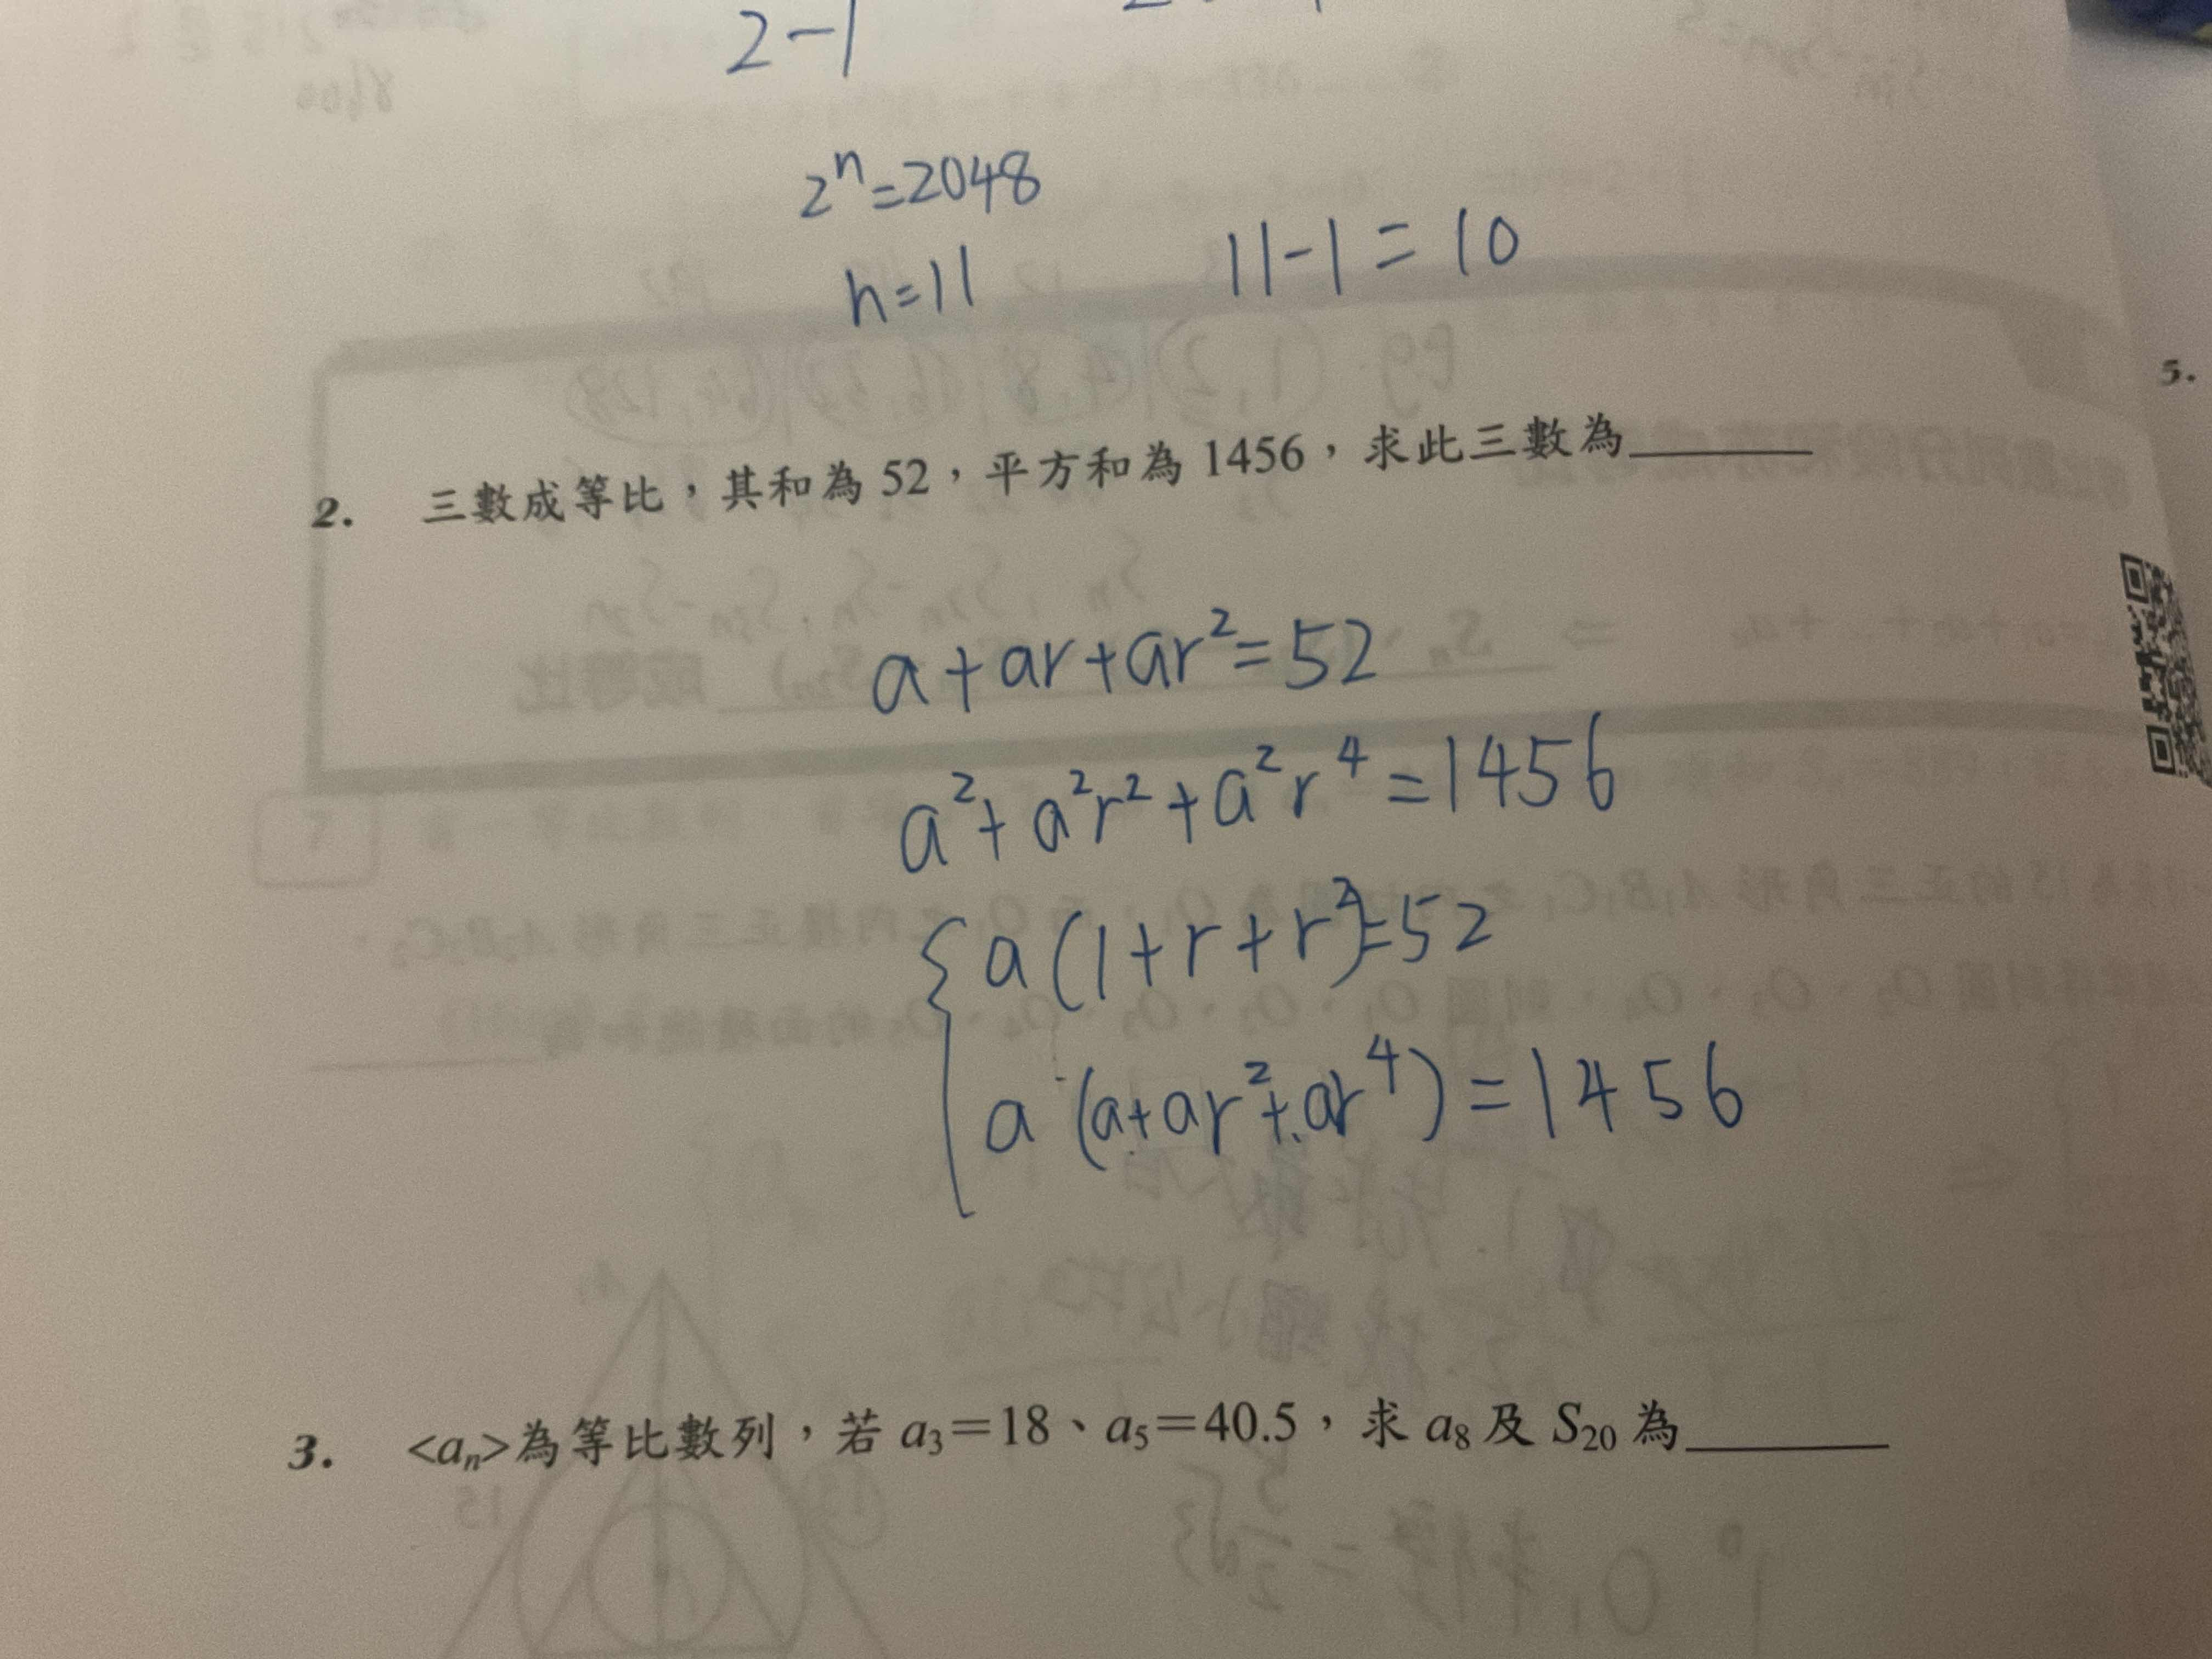 2-1
2ⁿ=2048
n=11
11-1=10
5.
2. 三數成等比，其和為 52，平方和為 1456，求此三數為______
a+ar+ar²=52
a²+a²r²+a²r⁴=1456
{a(1+r+r²)=52
a(a+ar²+ar⁴)=1456
3. <aₙ>為等比數列，若 a₃=18、a₅=40.5，求 a₈ 及 S₂₀ 為______